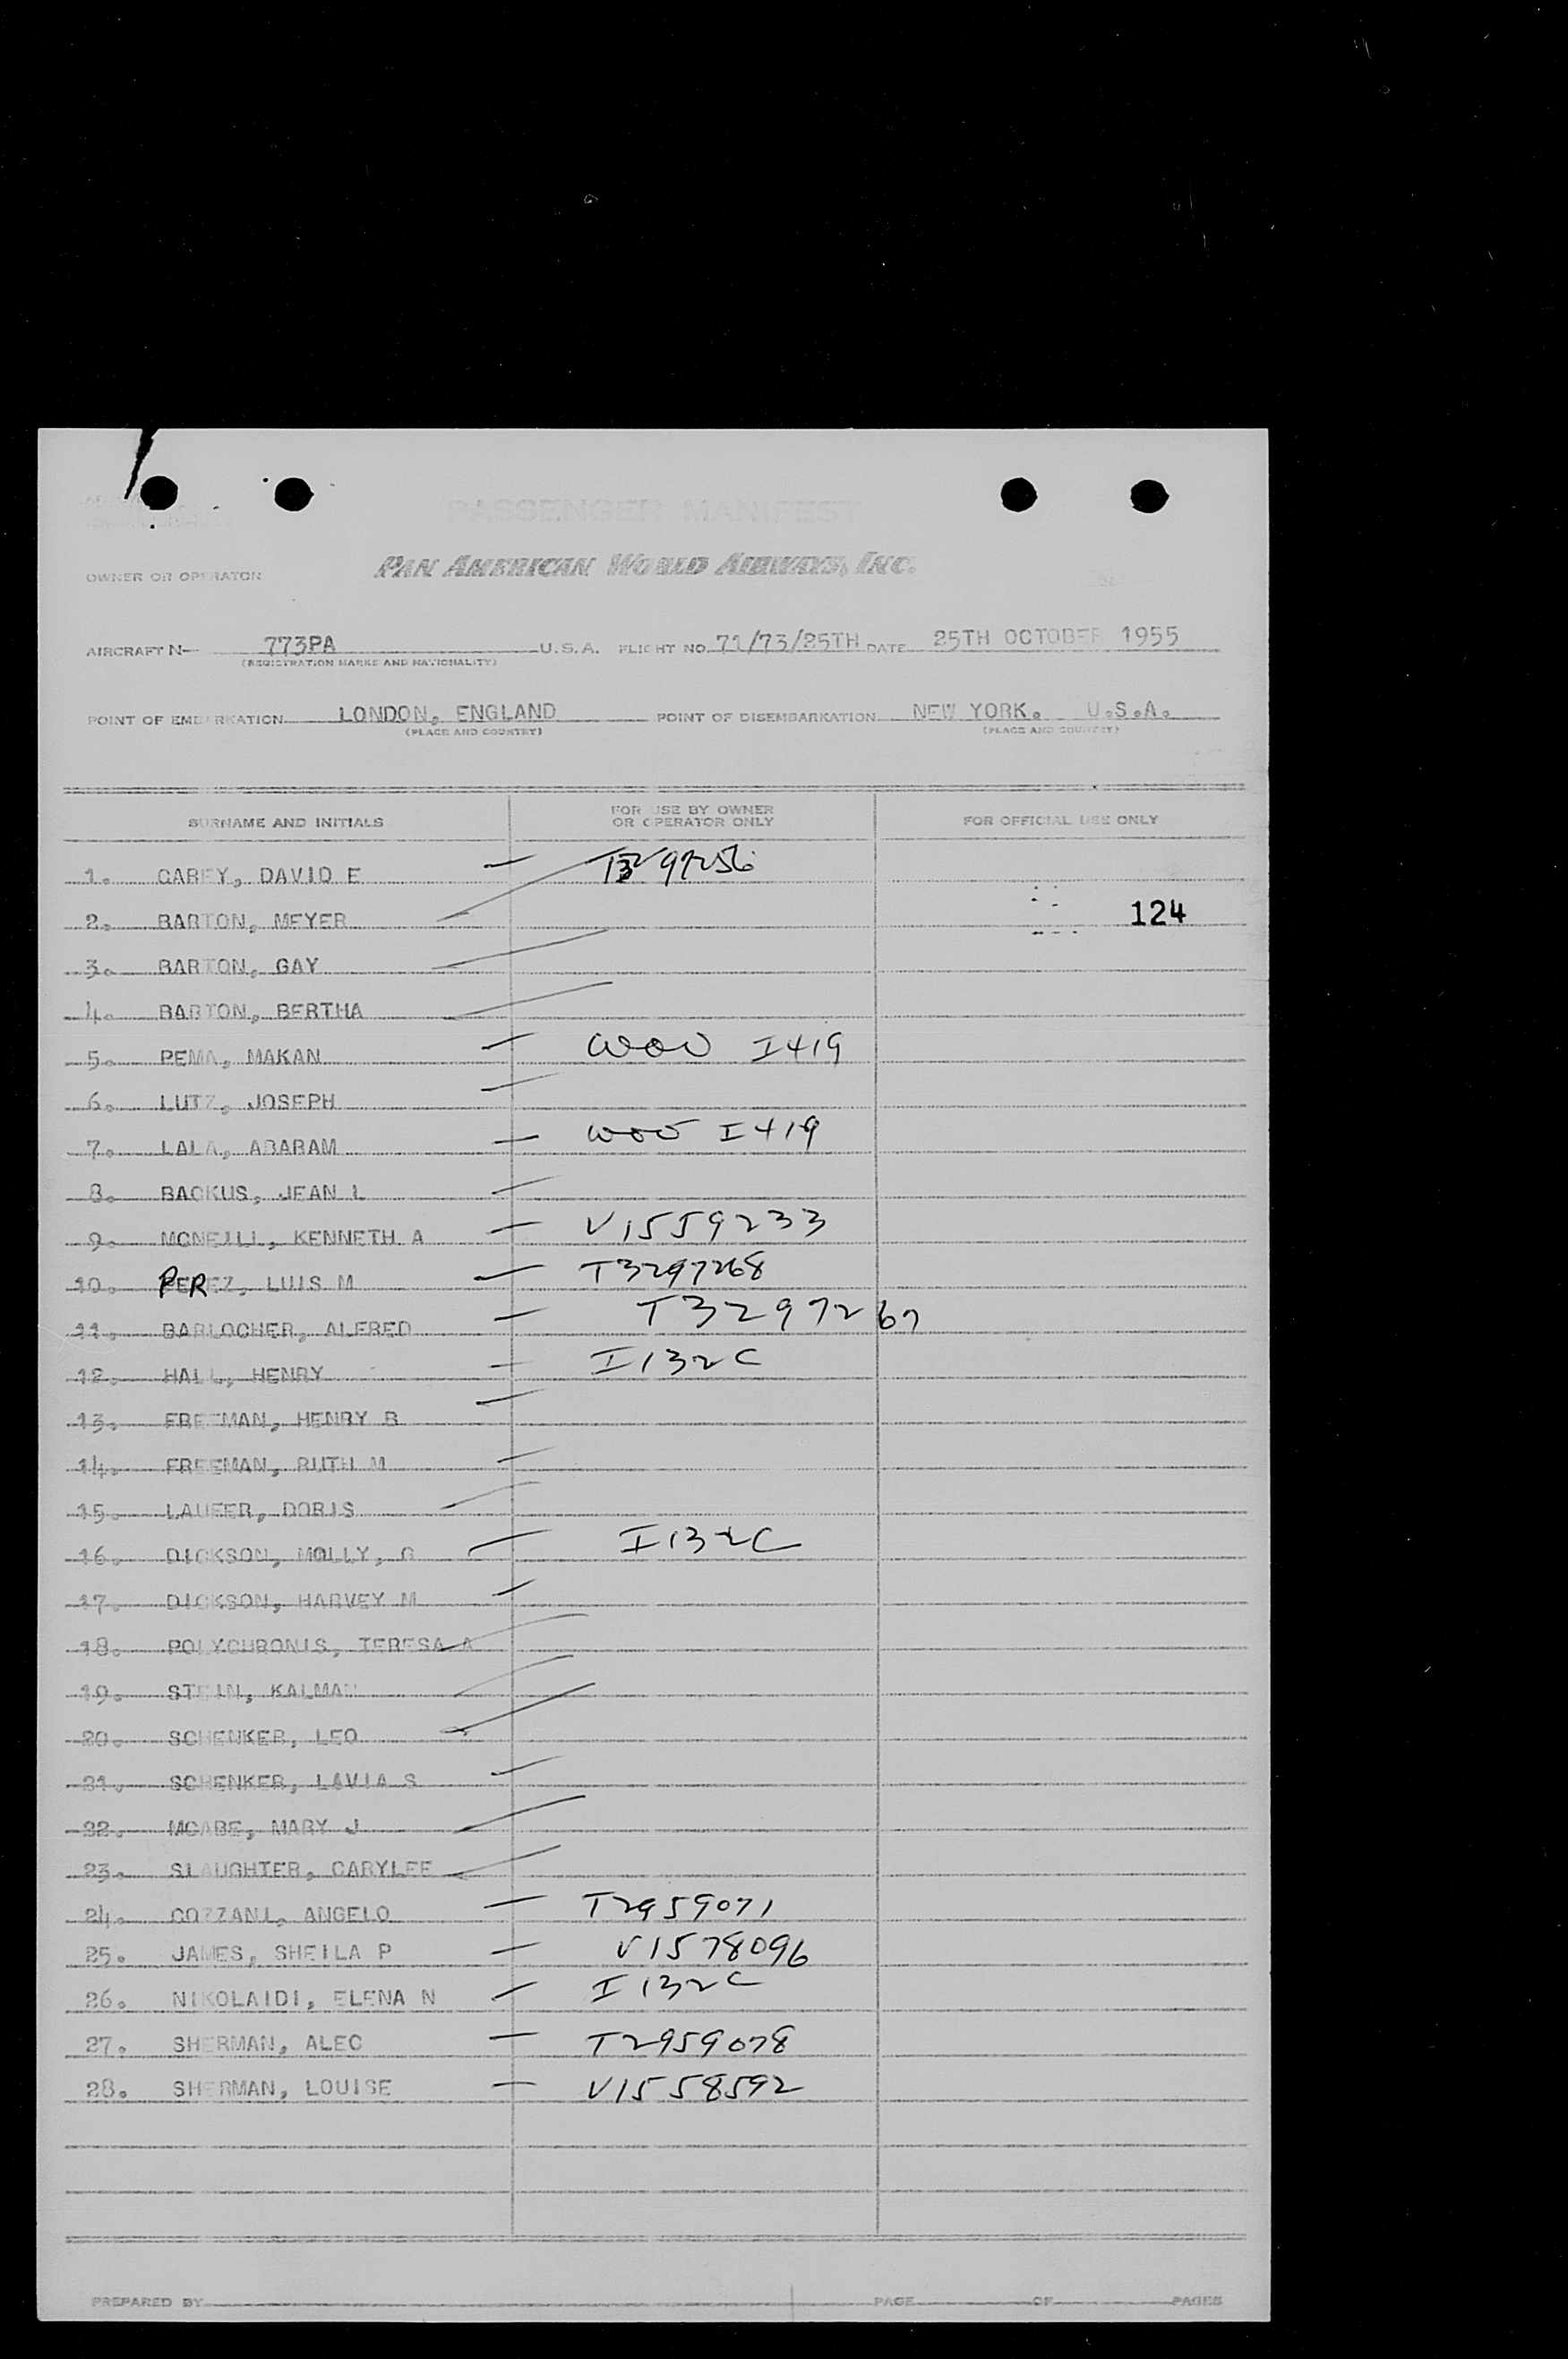 PASSENGER MANIFEST
OWNER OR OPERATOR PAN AMERICAN WORLD AIRWAYS, INC.
AIRCRAFT N- 773PA U.S.A. FLIGHT NO. 71/73/25TH DATE 25TH OCTOBER 1955
(REGISTRATION MARKS AND NATIONALITY)
POINT OF EMBARKATION LONDON, ENGLAND POINT OF DISEMBARKATION NEW YORK. U.S.A.
(PLACE AND COUNTRY) (PLACE AND COUNTRY)
SURNAME AND INITIALS FOR USE BY OWNER OR OPERATOR ONLY FOR OFFICIAL USE ONLY
1. CAREY, DAVID E — T3297256
2. BARTON, MEYER 124
3. BARTON, GAY
4. BARTON, BERTHA
5. PEMA, MAKAN — WOV I419
6. LUTZ, JOSEPH —
7. LALA, ABARAM — WOV I419
8. BACKUS, JEAN L —
9. MCNEILL, KENNETH A — V1559233
10. PEREZ, LUIS M — T3297268
11. BARLOCHER, ALFRED — T3297267
12. HALL, HENRY — I132C
13. FREEMAN, HENRY B —
14. FREEMAN, RUTH M —
15. LAUFER, DORIS
16. DICKSON, MOLLY, G — I132C
17. DICKSON, HARVEY M —
18. POLYCHRONIS, TERESA A
19. STEIN, KALMAN
20. SCHENKER, LEO
21. SCHENKER, LAVIA S —
22. MCABE, MARY J
23. SLAUGHTER, CARYLEE
24. COZZANI, ANGELO — T2959071
25. JAMES, SHEILA P — V1578096
26. NIKOLAIDI, ELENA N — I132C
27. SHERMAN, ALEC — T2959078
28. SHERMAN, LOUISE — V1558592
PREPARED BY PAGE OF PAGES